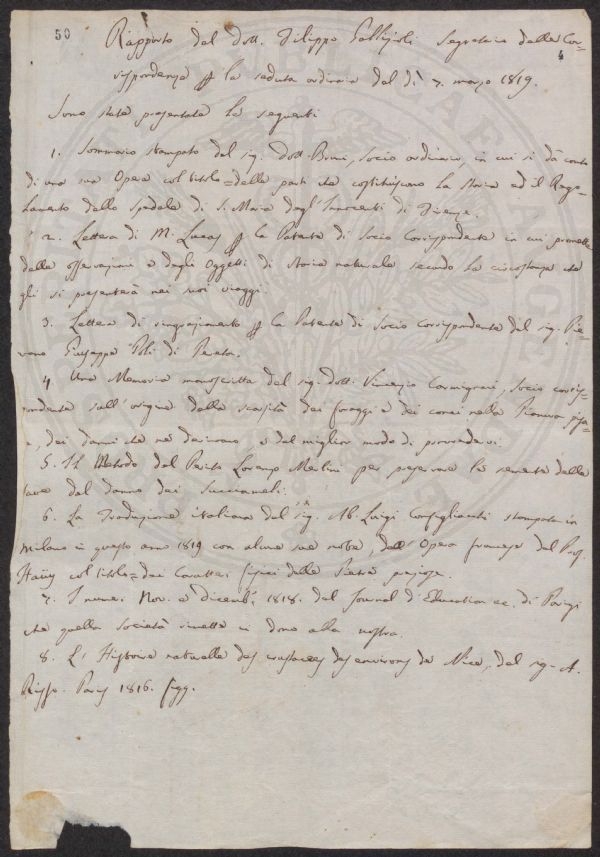 50
Rapporto del dott. Filippo Gallizioli Segretario delle Cor=
4
rispondenze p la seduta ordinaria del dì 7. marzo 1819.
Sono state presentate le seguenti
1. Sommario stampato del sig. dott. Bruni, Socio ordinario, in cui si dà conto
di una sua Opera col titolo = delle parti che costituiscono la storia ed il Rego-
lamento dello spedale di S. Maria degl'Innocenti di Firenze.
2. Lettera di M. Lucas p la Patente di Socio Corrispondente in cui promette
delle osservazioni e degli Oggetti di Storia naturale secondo le circostanze che
gli si presenterà nei suoi viaggi.
3. Lettera di ringraziamento p la Patente di Socio Corrispondente del sig. Pie-
vano Giuseppe Poli di Pereta.
4. Una Memoria manoscritta del sig. dott. Vincenzio Carmignani, Socio corris-
pondente sull'origine della scarsità dei foraggi e dei conci nella Pianura pisa-
na, dei danni che ne derivano e del miglior modo di provvedervi.
5. Il Metodo del Perito Lorenzo Merlini per preservare le semente delle
fave dal danno dei Succiameli.
6. La Traduzione italiana del sig. Ab. Luigi Configliachi stampata in
Milano in questo anno 1819 con alcune sue note, dell'Opera francese del Prof.
Haüy col titolo = dei Caratteri fisici delle Pietre preziose.
7. I numeri Nov. e dicemb. 1818. del Journal d'Education ec. di Parigi
che quella Società rimette in dono alla nostra.
8. L'Histoire naturelle des crustacées des environs de Nice, del sig. A.
Risso. Paris 1816. figg.